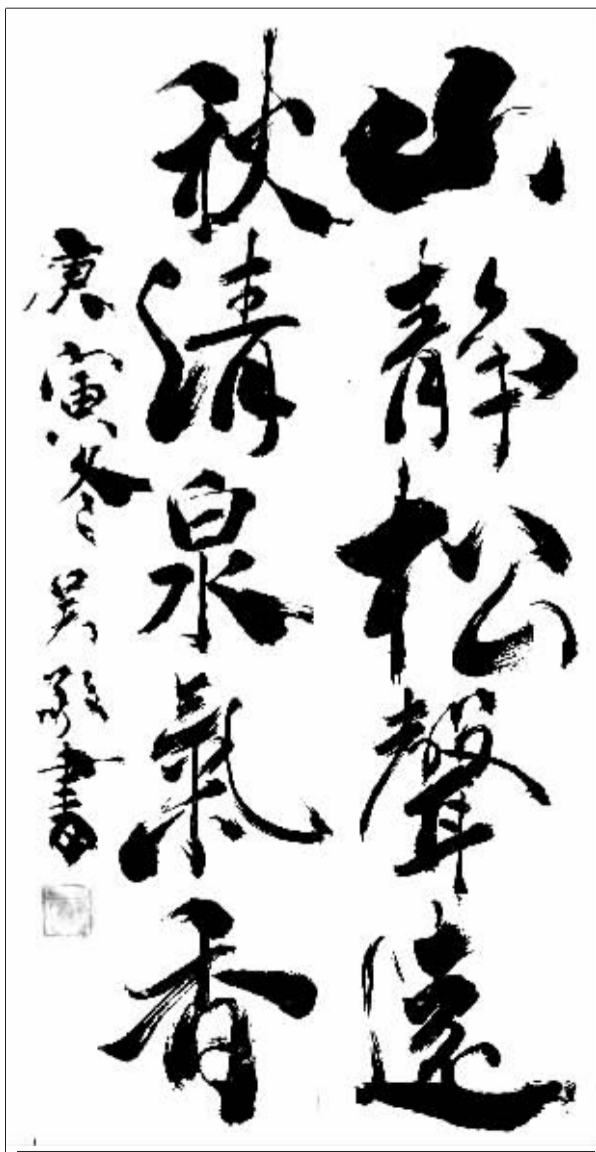 山静松聲遠
秋清泉氣香
庚寅冬吴敬書